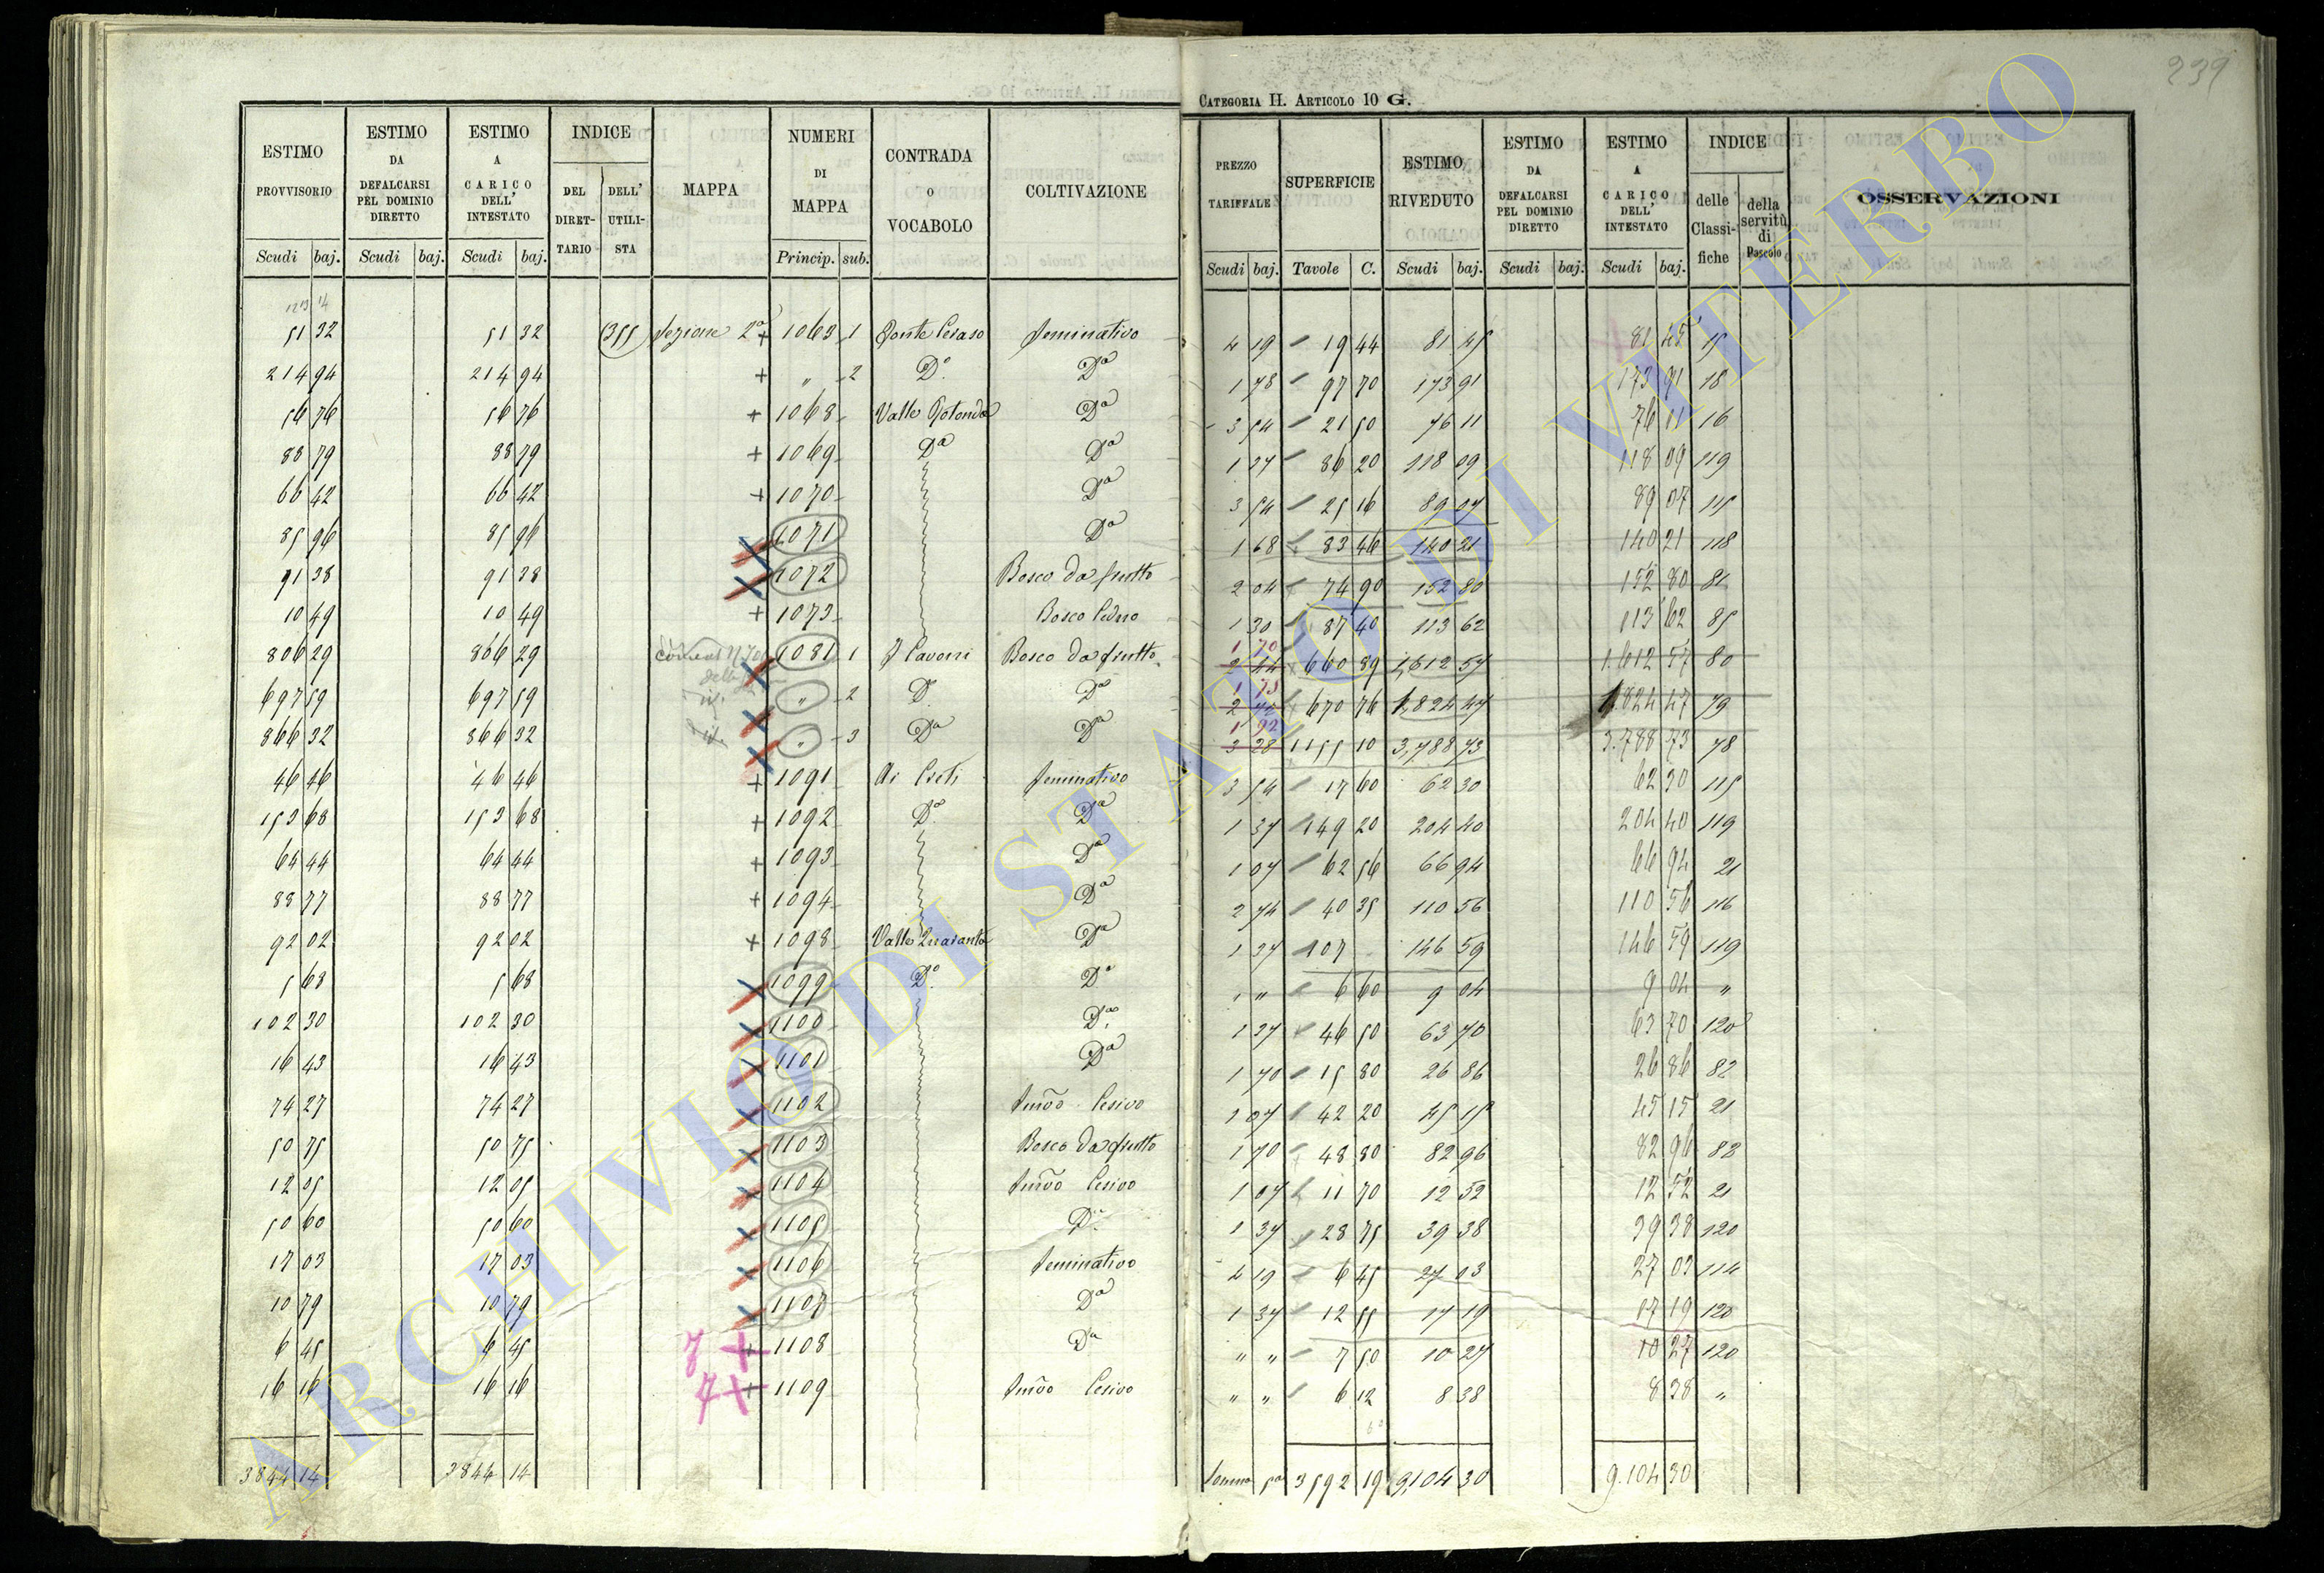 239
CATEGORIA II. ARTICOLO 10 G.
ESTIMO PROVVISORIO | ESTIMO DA DEFALCARSI PEL DOMINIO DIRETTO | ESTIMO A CARICO DELL' INTESTATO | INDICE | MAPPA | NUMERI DI MAPPA | CONTRADA O VOCABOLO | COLTIVAZIONE | PREZZO TARIFFALE | SUPERFICIE | ESTIMO RIVEDUTO | ESTIMO DA DEFALCARSI PEL DOMINIO DIRETTO | ESTIMO A CARICO DELL' INTESTATO | INDICE | OSSERVAZIONI
DEL DIRETTARIO | DELL' UTILISTA | delle Classifiche | della servitù di Pascolo
Scudi | baj. | Scudi | baj. | Scudi | baj. | Princip. | sub. | Scudi | baj. | Tavole | C. | Scudi | baj. | Scudi | baj. | Scudi | baj.
51 32 | 51 32 | 355 | Sezione 2a | + 1063 1 | | Seminativo | 4 19 | 19 44 | 81 45 | 81 45 | 15
214 94 | 214 94 | + „ 2 | Do. | Da | 1 78 | 97 70 | 173 91 | 173 91 | 18
56 76 | 56 76 | + 1068 | Valle Rotonda | Da | 3 54 | 21 50 | 76 11 | 76 11 | 16
88 79 | 88 79 | + 1069 | Da | Da | 1 37 | 86 20 | 118 09 | 118 09 | 119
66 42 | 66 42 | + 1070 | Da | 3 54 | 25 16 | 89 07 | 89 07 | 115
85 96 | 85 96 | 1071 | Da | 1 68 | 83 46 | 140 21 | 140 21 | 118
91 38 | 91 38 | 1072 | Bosco da frutto | 2 04 | 74 90 | 152 80 | 152 80 | 81
10 49 | 10 49 | + 1073 | Bosco Ceduo | 1 30 | 87 40 | 113 62 | 113 62 | 85
806 29 | 806 29 | 1081 1 | | Bosco da frutto | 1 70 | 2 44 | 660 89 | 1,612 57 | 1.612 57 | 80
697 59 | 697 59 | „ 2 | Do | Da | 1 73 | 670 76 | 1,824 47 | 1.824 47 | 79
866 32 | 866 32 | „ 3 | Da | Da | 1 92 | 3 28 | 1155 10 | 3,788 73 | 3.788 73 | 78
46 46 | 46 46 | + 1091 | | Seminativo | 3 54 | 17 60 | 62 30 | 62 30 | 115
153 68 | 153 68 | + 1092 | Da | Da | 1 37 | 149 20 | 204 40 | 204 40 | 119
64 44 | 64 44 | + 1093 | Da | 1 07 | 62 56 | 66 94 | 66 94 | 21
88 77 | 88 77 | + 1094 | Da | 2 74 | 40 35 | 110 56 | 110 56 | 116
92 02 | 92 02 | + 1098 | Valle Quaranta | Da | 1 37 | 107 | 146 59 | 146 59 | 119
5 63 | 5 63 | 1099 | Do. | Da | „ „ | 6 60 | 9 04 | 9 04 | „
102 30 | 102 30 | 1100 | Da | 1 37 | 46 50 | 63 70 | 63 70 | 120
16 43 | 16 43 | 1101 | Da | 1 70 | 15 80 | 26 86 | 26 86 | 82
74 27 | 74 27 | 1102 | Semvo Cesivo | 1 07 | 42 20 | 45 15 | 45 15 | 21
50 75 | 50 75 | 1103 | Bosco da frutto | 1 70 | 48 80 | 82 96 | 82 96 | 82
12 05 | 12 05 | 1104 | Semvo Cesivo | 1 07 | 11 70 | 12 52 | 12 52 | 21
50 60 | 50 60 | 1105 | Da | 1 37 | 28 75 | 39 38 | 39 38 | 120
17 03 | 17 03 | 1106 | Seminativo | 4 19 | 6 45 | 27 03 | 27 03 | 114
10 79 | 10 79 | 1107 | Da | 1 37 | 12 55 | 17 19 | 17 19 | 120
6 45 | 6 45 | 7 + 1108 | Da | „ „ | 7 50 | 10 27 | 10 27 | 120
16 16 | 16 16 | 7 + 1109 | Semvo Cesivo | „ „ | 6 12 | 8 38 | 8 38 | „
3844 14 | 3844 14 | Somma | 3592 19 | 9,104 30 | 9.104 30
ARCHIVIO DI STATO DI VITERBO